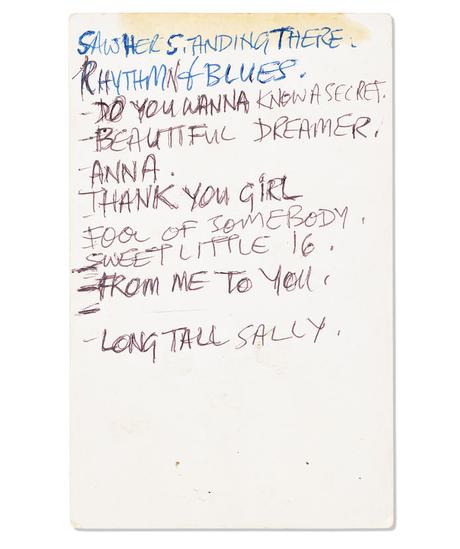 SAW HER STANDING THERE.
RHYTHMN & BLUES.
-DO YOU WANNA KNOW A SECRET.
-BEAUTIFUL DREAMER.
-ANNA.
THANK YOU GIRL
FOOL OF SOMEBODY.
SWEET LITTLE 16.
FROM ME TO YOU.
-LONG TALL SALLY.